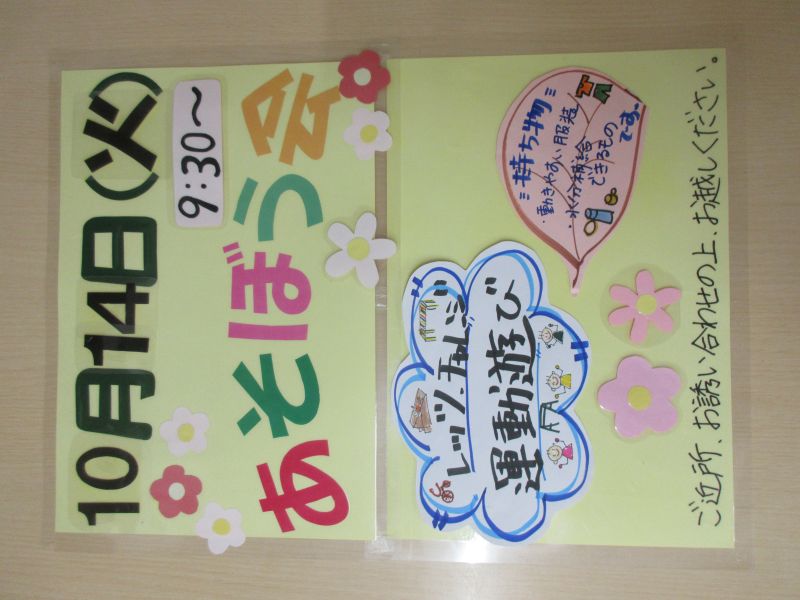 10月14日(火)
9:30～
あそぼう会
レッツ チャレンジ
運動遊び
持ち物
・動きやすい服装
・水分補給
できるもの
です。
ご近所、お誘い合わせの上、お越しください。